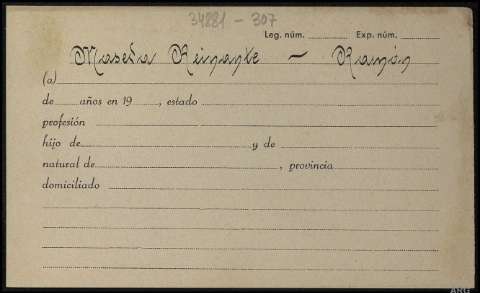 34881 - 307
Leg. núm. Exp. núm.
Maseda Reinante - Ramón
(a)
de años en 19 , estado
profesión
hijo de y de
natural de , provincia
domiciliado
ARG